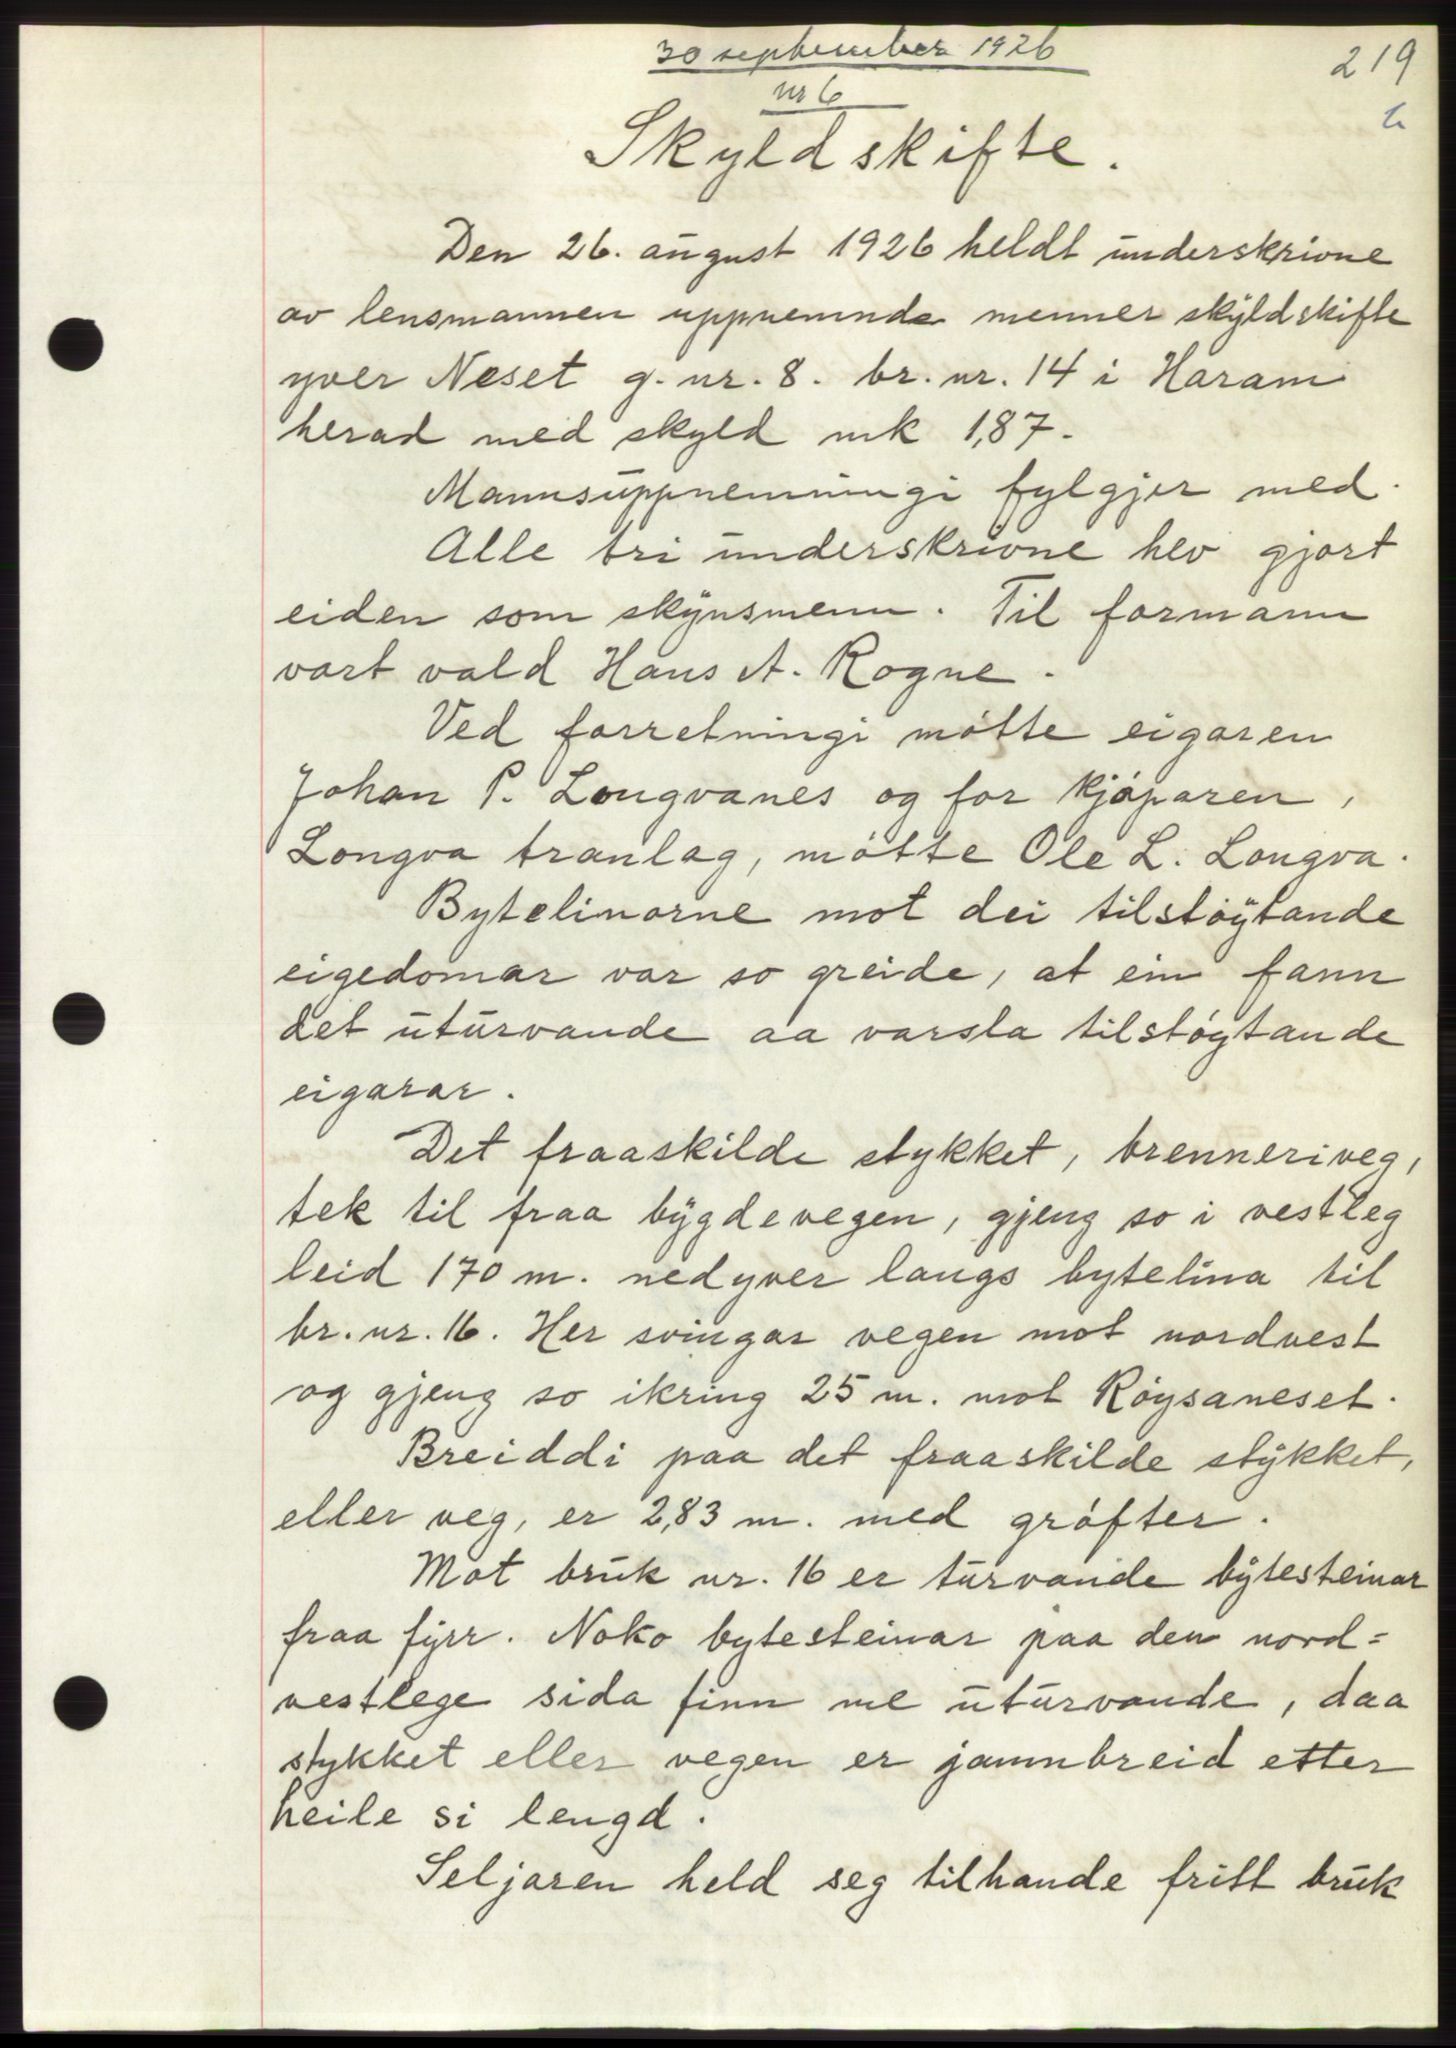 30 september 1926
219
nr 6
Skyldskifte.
Den 26. august 1926 heldt underskrivne
av lensmannen uppnemnde menner skyldskifte
yver Neset g. nr. 8. br. nr. 14 i Haram
herad med skyld mk 1,87.
Mannsuppnemningi fylgjer med.
Alle tri underskrivne hev gjort
eiden som skynsmenn. Til formann
vart vald Hans A. Rogne.
Ved forretningi møtte eigaren
Johan P. Longvanes og for kjøparen,
Longva tranlag, møtte Ole L. Longva.
Bytelinorne mot dei tilstøytande
eigedomar var so greide, at ein fann
det uturvande aa varsla tilstøytande
eigarar.
Det fraaskilde stykket, brenneriveg,
tek til fraa bygdevegen, gjeng so i vestleg
leid 170 m. nedyver langs bytelina til
br. nr. 16. Her svingar vegen mot nordvest
og gjeng so ikring 25 m. mot Røysaneset.
Breiddi paa det fraaskilde stykket,
eller veg, er 2,83 m. med grøfter.
Mot bruk nr. 16 er turvande bytesteinar
fraa fyrr. Noko bytesteinar paa den nord=
vestlege sida finn me uturvande, daa
stykket eller vegen er jamnbreid etter
heile si lengd.
Seljaren held seg tilhande fritt bruk